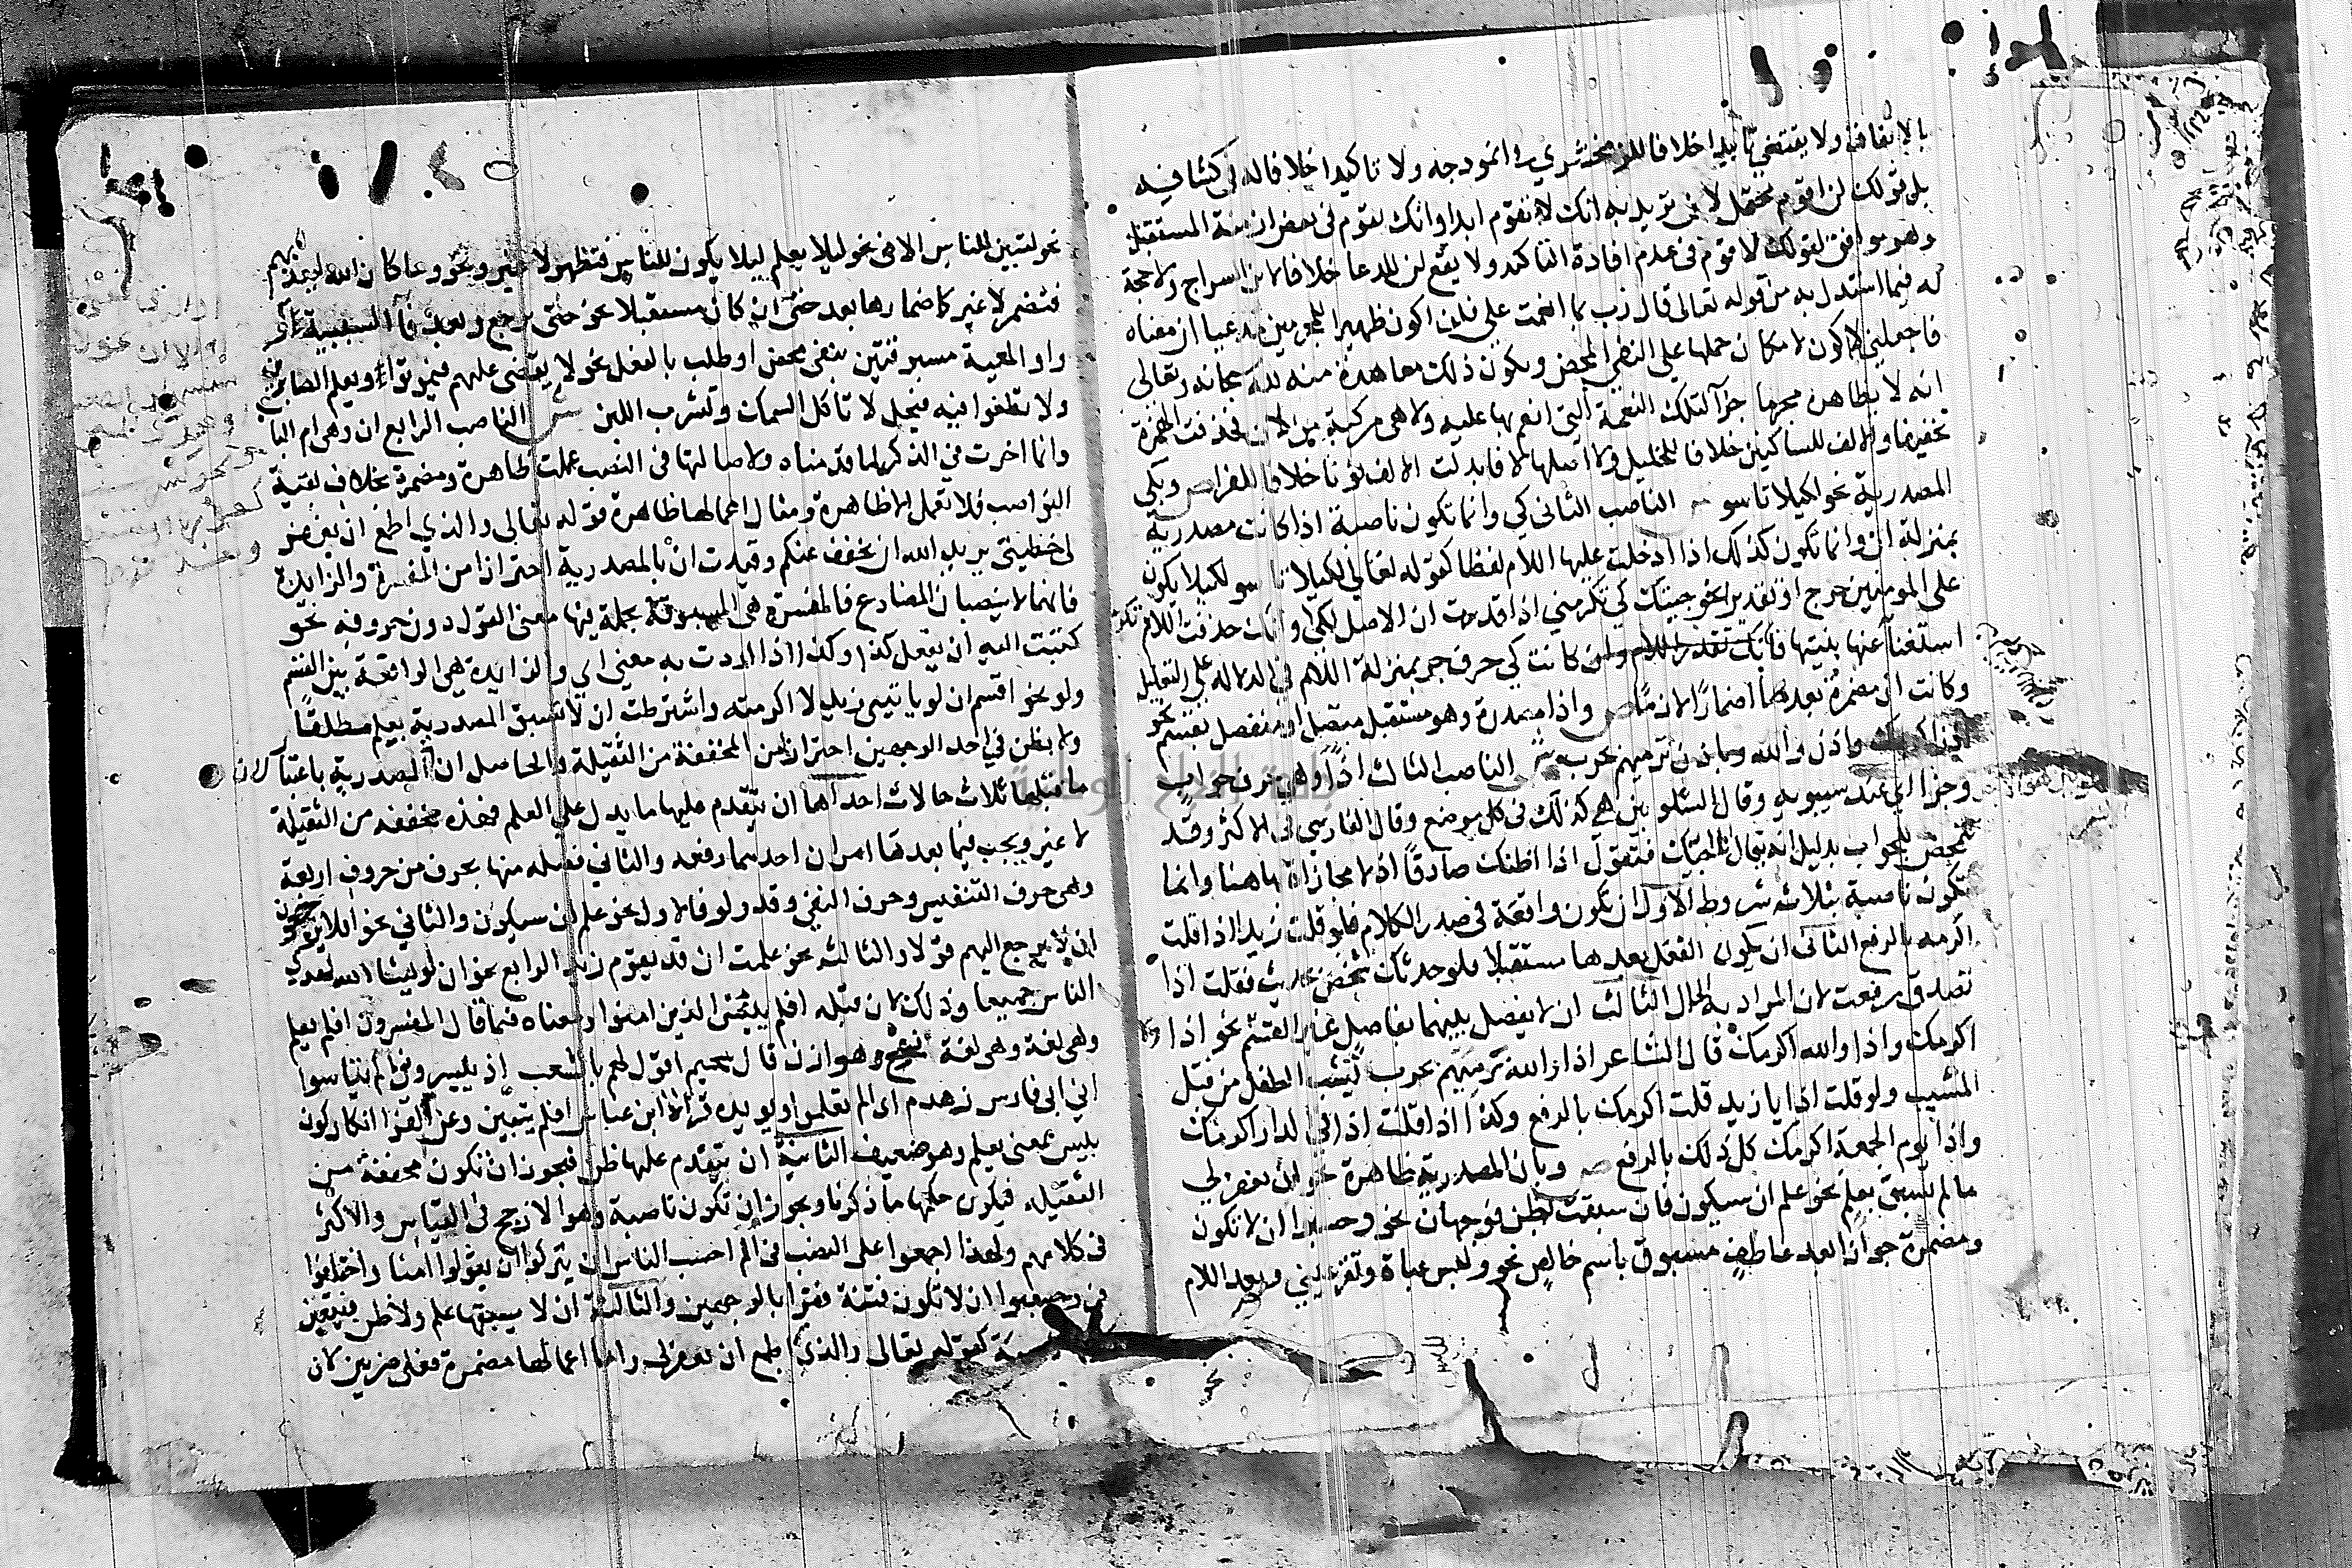 بالاتفاق ولا يقتضي تأبيدا خلافا للزمخشري في انموذجه ولا تاكيدا خلافا له في كشافه
بل قولك لن اقوم محتمل لان تريد به انك لا تقوم ابدا وانك لا تقوم في بعض ازمنة المستقبل
وهو موافق لقولك لا اقوم في عدم افادة التاكيد ولا يقع لن للدعا خلافا لابن السراج ولا حجة
له فيما استدل به من قوله تعالى قال رب بما انعمت علي فلن اكون ظهيرا للمجرمين مدعيا ان معناه
فاجعلني لا اكون لامكان حملها على النفي المحض ويكون ذلك معاهدة منه لله سبحانه وتعالى
انه لا يظاهر مجرما جزآ لتلك النعمة التي انعم بها عليه ولا هي مركبة من لا ان فحذفت الهمزة
تخفيفا والالف للساكنين خلافا للخليل ولا اصلها لا فابدلت الالف نونا خلافا للفرا ص وبكي
المصدرية نحو لكيلا تاسو ش الناصب الثاني كي وانما تكون ناصبة اذا كانت مصدرية
بمنزلة ان وانما تكون كذلك اذا دخلت عليها اللام لفظا كقوله تعالى لكيلا تاسو لكيلا يكون
على المومنين حرج او تقديرا نحو جيتك كي تكرمني اذا قدرت ان الاصل لكي وانك حذفت اللام
استغنآ عنها بنيتها فان لم تقدر اللام كانت كي حرف جر بمنزلة اللام في الدلالة على التعليل
وكانت ان مضمرة بعدها اضمارا لازما ص واذا مصدرة وهو مستقبل متصل او منفصل بقسم نحو
اذا اكرمك واذن والله نرميهم بحرب ش الناصب الثالث اذا وهي حرف جواب
وجزا اي عند سيبويه وقال الشلوبين هي كذلك في كل موضع وقال الفارسي في الاكثر وقد
تتمحض للجواب بدليل انه يقال احبك فتقول اذا اظنك صادقا اذ لا مجازاة هاهنا وانما
تكون ناصبة بثلاثه شروط الاول ان تكون واقعة في صدر الكلام فلو قلت زيد اذا قلت
اكرمه بالرفع الثاني ان يكون الفعل بعدها مستقبلا فلو حدثك شخص بحديث فقلت اذا
تصدق رفعت لان المراد به الحال الثالث ان لا يفصل بينهما بفاصل غير القسم نحو اذا
اكرمك واذا والله اكرمك قال الشاعر اذا والله نرميهم بحرب تشيب الطفل من قبل
المشيب ولو قلت اذا يا زيد قلت اكرمك بالرفع وكذا اذا قلت اذا في الدار اكرمك
واذا يوم الجمعة اكرمك كل ذلك بالرفع ص وبان المصدرية ظاهرة نحو ان يغفر لي
ما لم تسبق بعلم نحو علم ان سيكون فان سبقت بظن فوجهان نحو وحسبوا ان لا تكون
ومضمرة جوازا بعد عاطف مسبوق باسم خالص نحو ولبس عباة وتقر عيني وبعد اللام
نحو لتبين للناس الا في نحو ليلا يعلم ليلا يكون للناس فتظهر لا غير ونحو وما كان الله ليعذبهم
فتضمر لا غير كاضمارها بعد حتى ان كان مستقبلا نحو حتى يرجع وبعد فآ السببية او
واو المعية مسبوقتين بنفي محض او طلب بالفعل نحو لا يقضى عليهم فيموتوا ويعلم الصابرين
ولا تطغوا فيه فيحل لا تاكل السمك وتشرب اللبن ش الناصب الرابع ان وهي ام الباب
وانما اخرت في الذكر لما قدمناه ولاصالتها في النصب عملت ظاهرة ومضمرة بخلاف بقية
النواصب فلا تعمل الا ظاهرة ومثال اعمالها ظاهرة قوله تعالى والذي اطمع ان يغفر
لي خطيئتي يريد الله ان يخفف عنكم وقيدت ان بالمصدرية احترازا من المفسرة والزايدة
فانهما لا ينصبان المضارع فالمفسرة هي المسبوقة بجملة فيها معنى القول دون حروفه نحو
كتبت اليه ان يفعل كذا وكذا اذا اردت به معنى اي والزايدة هي الواقعة بين القسم
ولو نحو اقسم ان لو ياتيني زيد لاكرمته واشترطت ان لا تسبق المصدرية بعلم مطلقا
ولا بظن في احد الوجهين احترازا من المخففة من الثقيلة والحاصل ان لان المصدرية باعتبار
ما قبلها ثلاث حالات احداها ان يتقدم عليها ما يدل على العلم فهذه مخففه من الثقيلة
لا غير ويجب فيما بعدها امران احدهما رفعه والثاني فصله منها بحرف من حروف اربعة
وهي حرف التنفيس وحرف النفي وقد ولو فالاول نحو علم ان سيكون والثاني نحو افلا يرون
ان لا يرجع اليهم قولا والثالث نحو علمت ان قد يقوم زيد والرابع نحو ان لو يشا الله لهدى
الناس جميعا وذلك لان قبله افلم ييئس الذين امنوا ومعناه فيما قال المفسرون افلم يعلم
وهي لغة النخع وهوازن قال سحيم اقول لهم بالشعب اذ ييسرونني الم تياسوا
اني ابن فارس زهدم اي الم تعلموا ويويده قراة ابن عباس افلم يتبين وعن الفرا انكار كون
ييس بمعنى يعلم وهو ضعيف الثانية ان يتقدم عليها ظن فيجوز ان تكون مخففة من
الثقيلة فيكون حكمها ما ذكرنا ويجوز ان تكون ناصبة وهو الارجح في القياس والاكثر
في كلامهم ولهذا اجمعوا على النصب في الم احسب الناس ان يتركوا ان يقولوا امنا واختلفوا
في وحسبوا ان لا تكون فتنة فقرا بالوجهين والثالثة ان لا يسبقها علم ولا ظن فيتعين
كقوله تعالى والذي اطمع ان يغفر لي واما اعمالها مضمرة فعلى ضربين لان